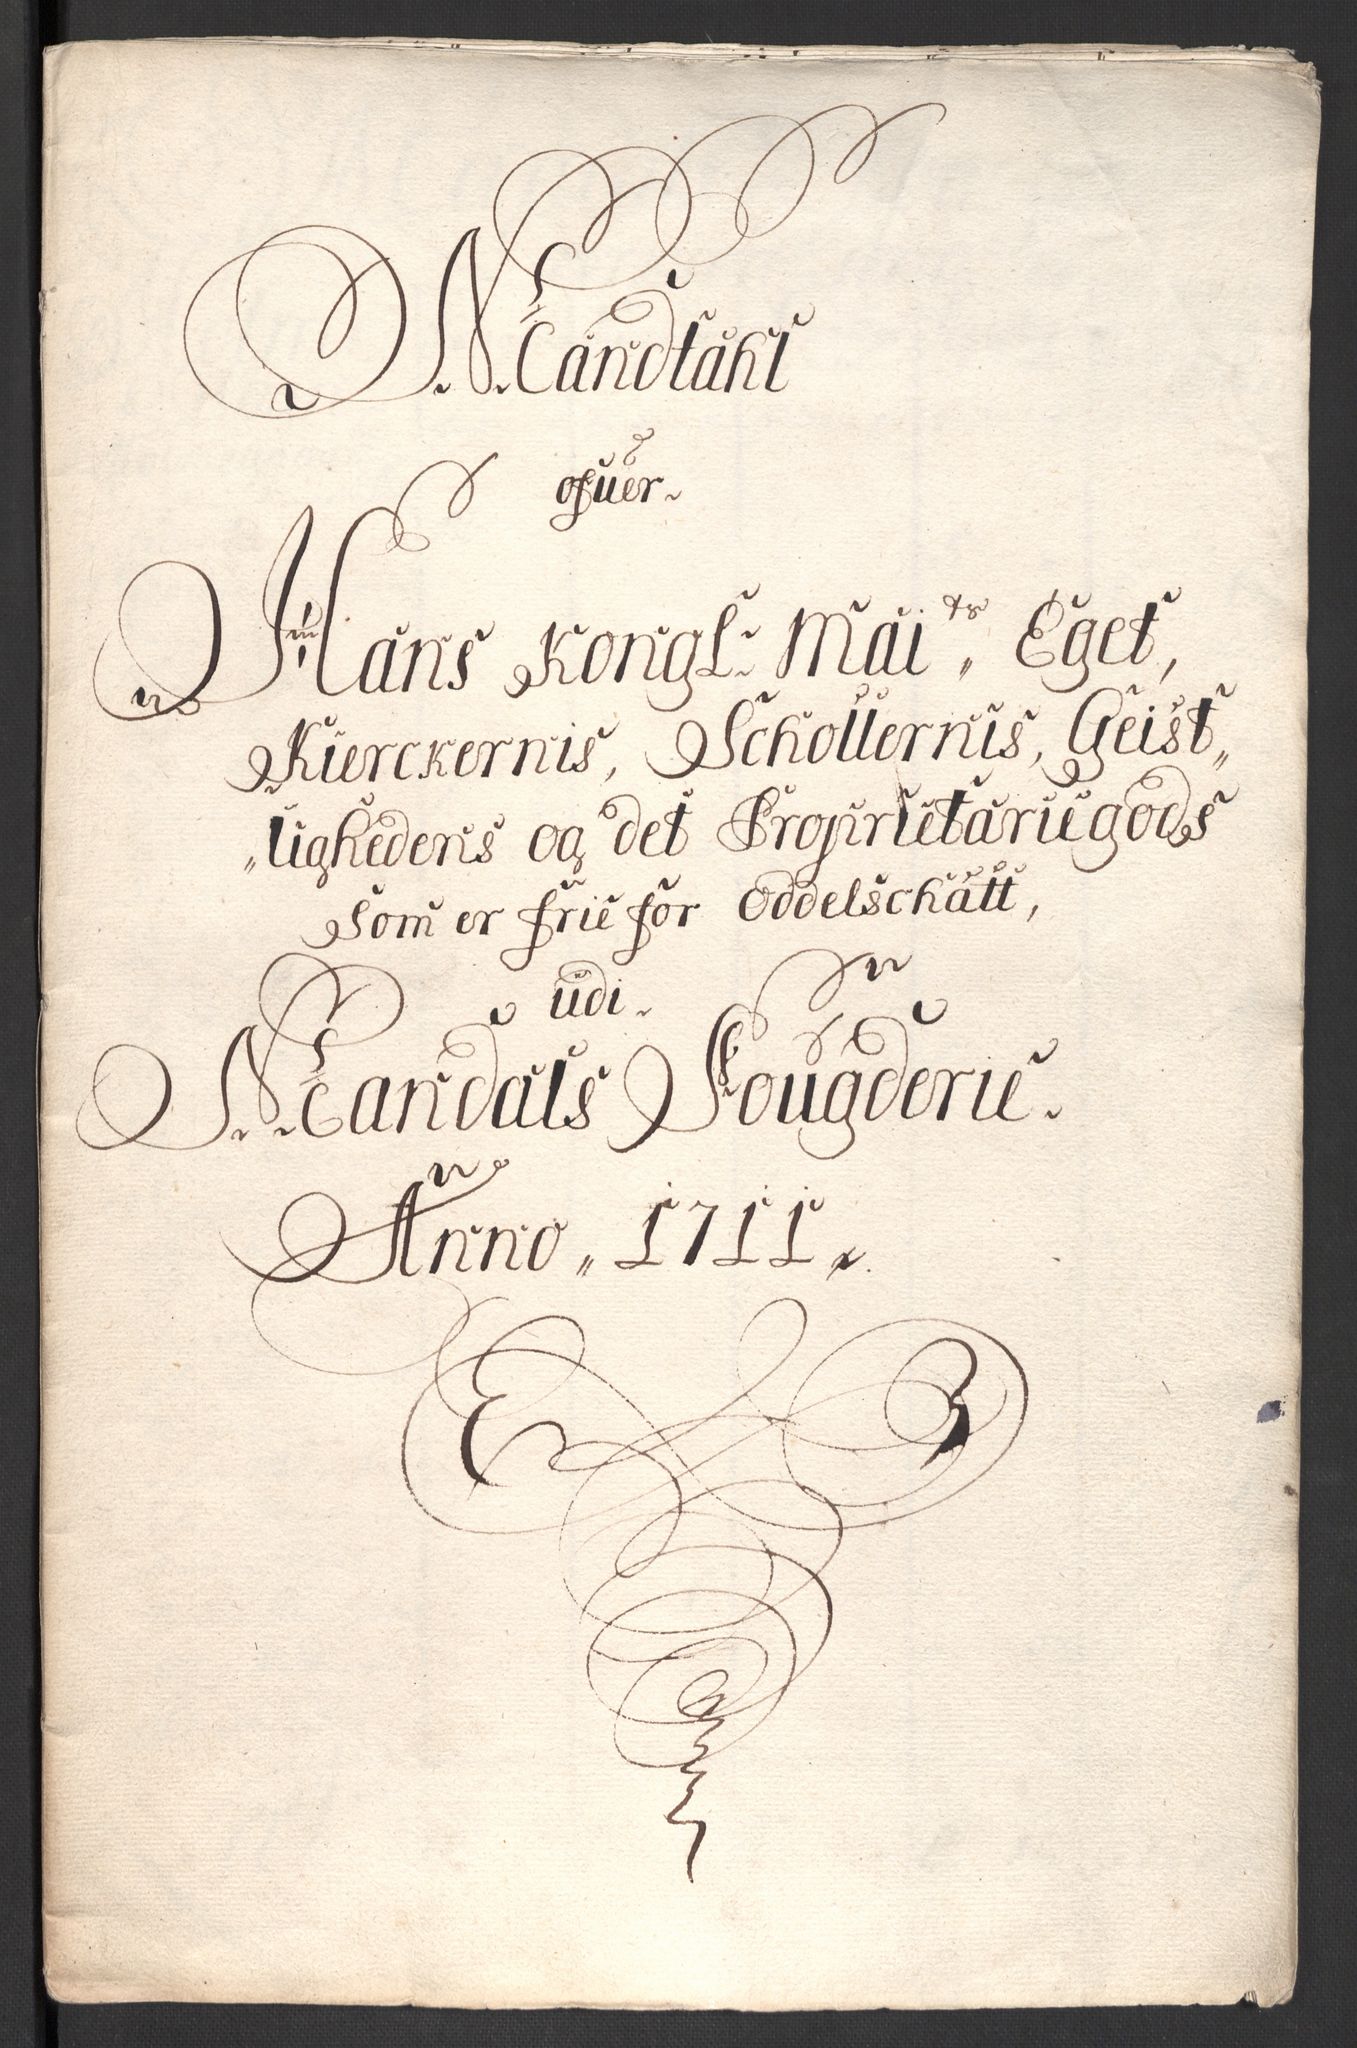 Mandtahl
ofuer
Hans Kongl: Mai^ts Eget,
Kierckernis, Schollernis, Geist„
„lighedens og det Proprietariegods
som er frie for Oddelschatt,
udi
Mandals Fougderie
Anno „ 1711